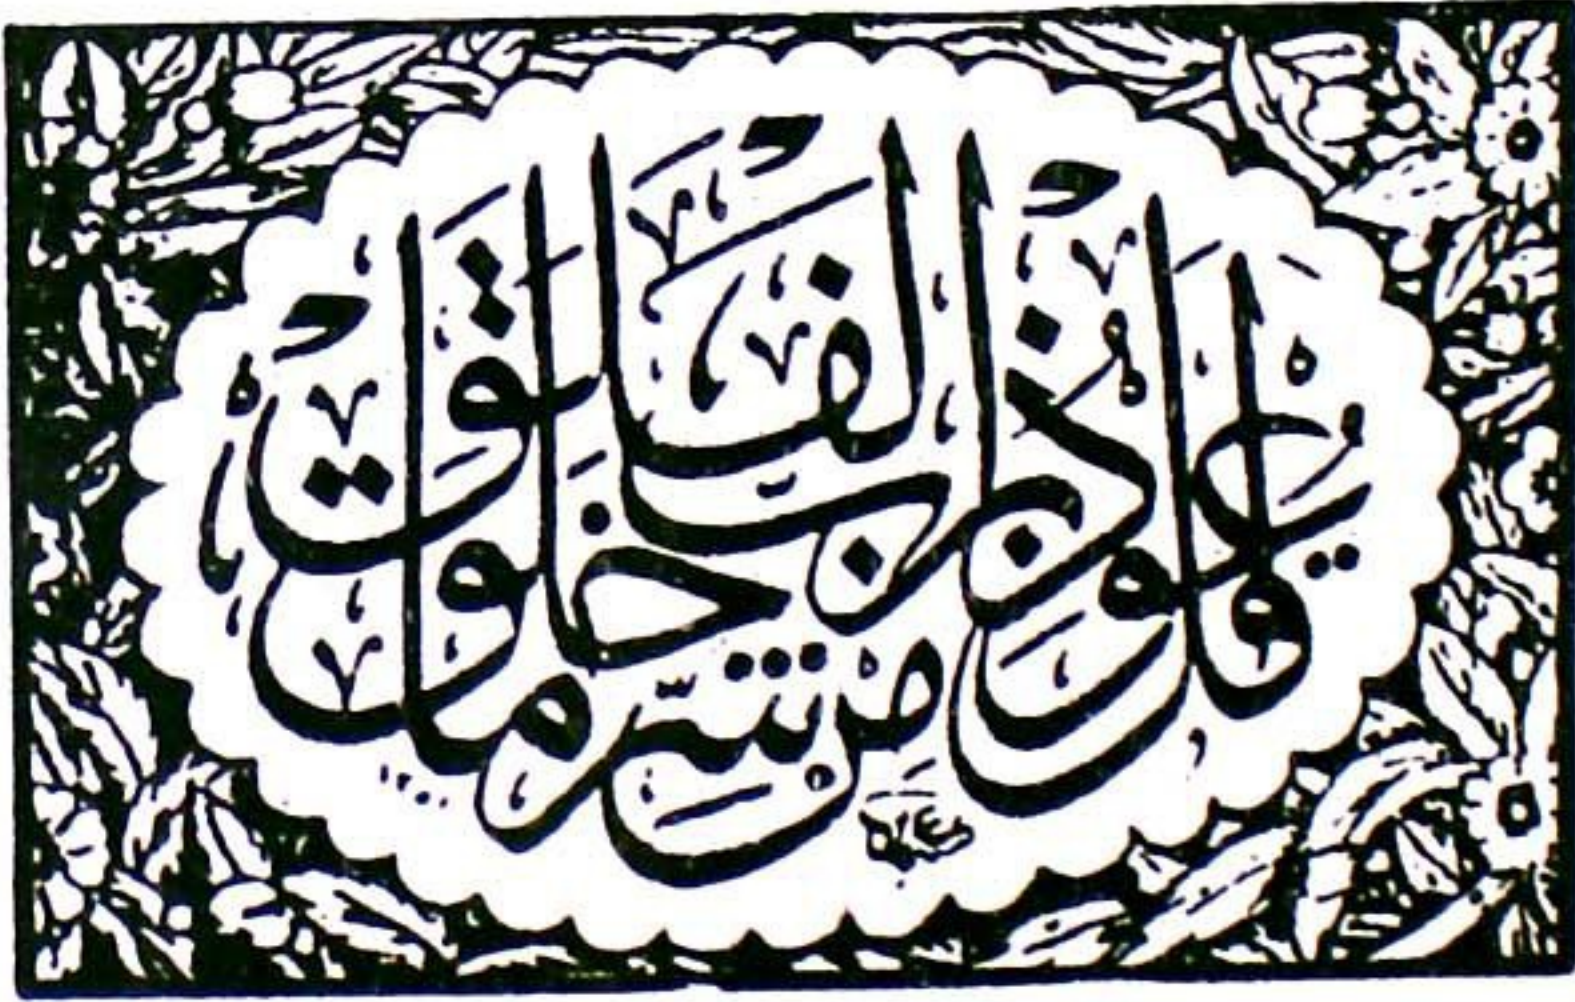 قُلْ أَعُوذُ بِرَبِّ الْفَلَقِ
مِنْ شَرِّ مَا خَلَقَ